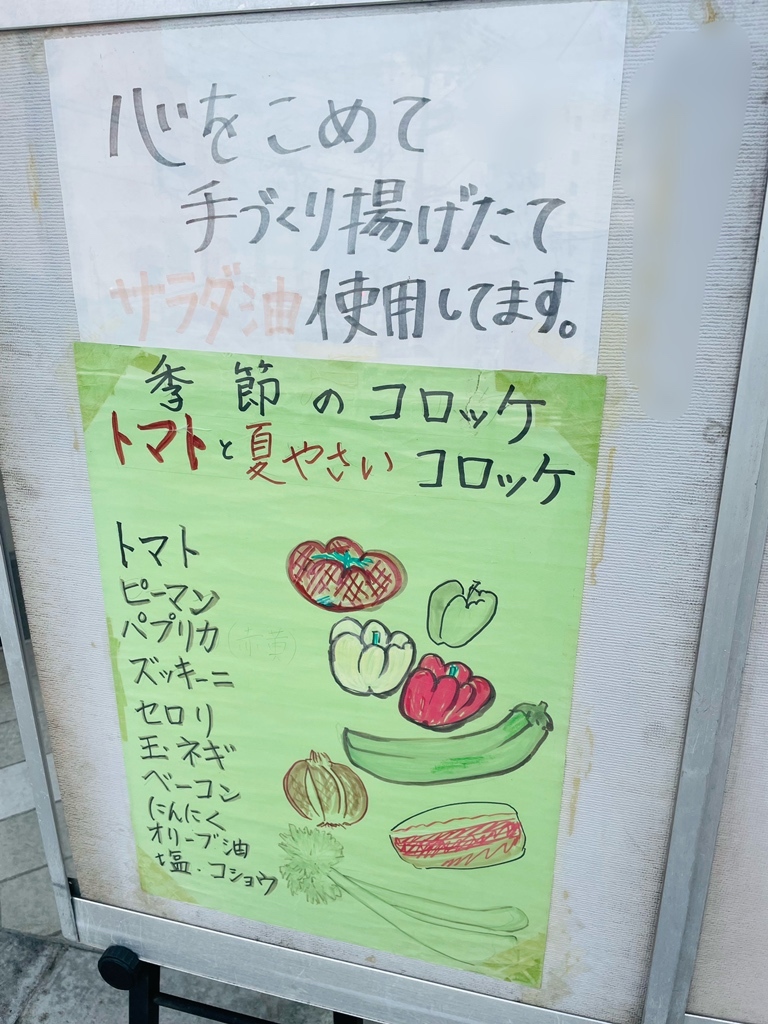 心をこめて
手づくり揚げたて
サラダ油使用してます。
季節のコロッケ
トマトと夏やさいコロッケ
トマト
ピーマン
パプリカ
ズッキーニ
セロリ
玉ネギ
ベーコン
にんにく
オリーブ油
塩・コショウ